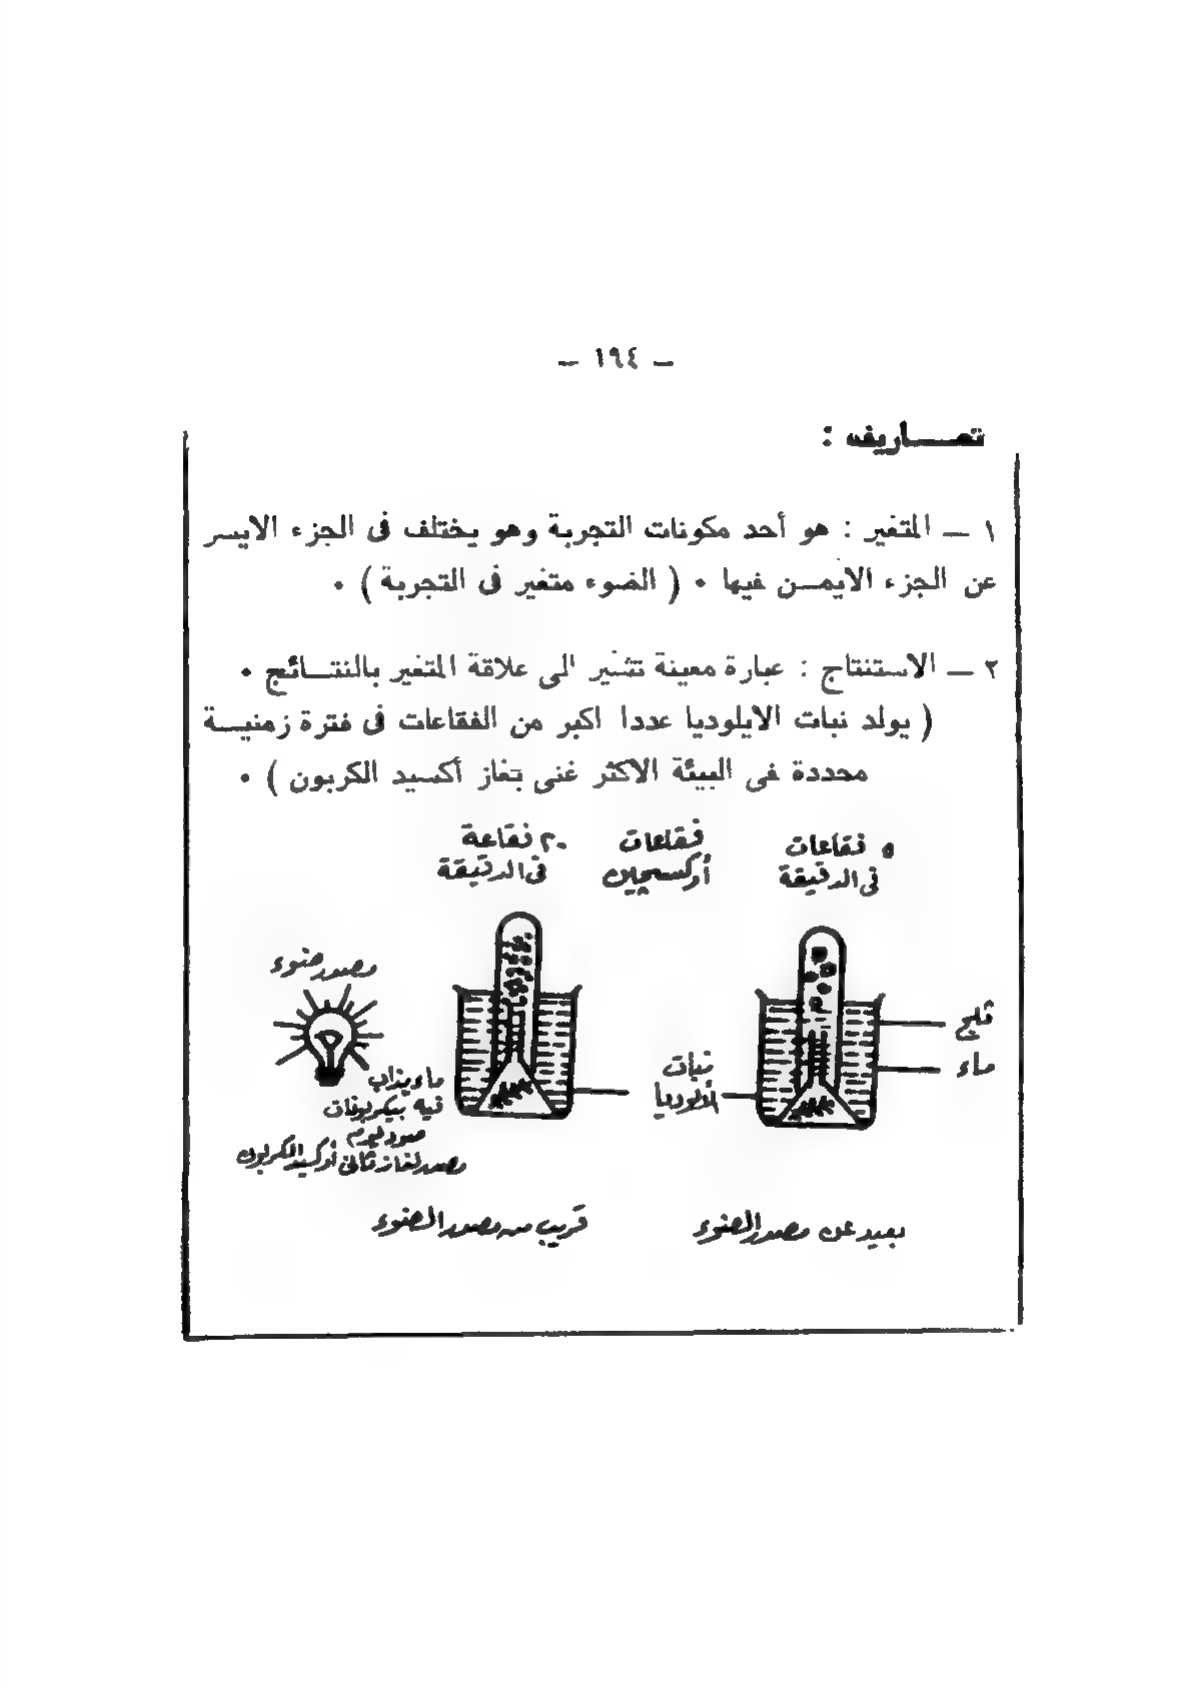 — ١٩٤ —
تعـــاريف :
١ — المتغير : هو أحد مكونات التجربة وهو يختلف فى الجزء الايسر
عن الجزء الايمـــن فيها • ( الضوء متغير فى التجربة ) •
٢ — الاستنتاج : عبارة معينة تشير الى علاقة المتغير بالنتـــائج •
( يولد نبات الايلوديا عددا اكبر من الفقاعات فى فترة زمنيـــة
محددة فى البيئة الاكثر غنى بغاز أكسيد الكربون ) •
٥ فقاعات
فى الدقيقة
فقاعات
أوكسجين
٢٠ فقاعة
فى الدقيقة
مصدر ضوء
ثلج
ماء
نبات
الألوديا
ماء يذاب
فيه بيكربونات
صوديوم
مصدر لغاز ثانى أوكسيد الكربون
بعيد عن مصدر الضوء
قريب من مصدر الضوء